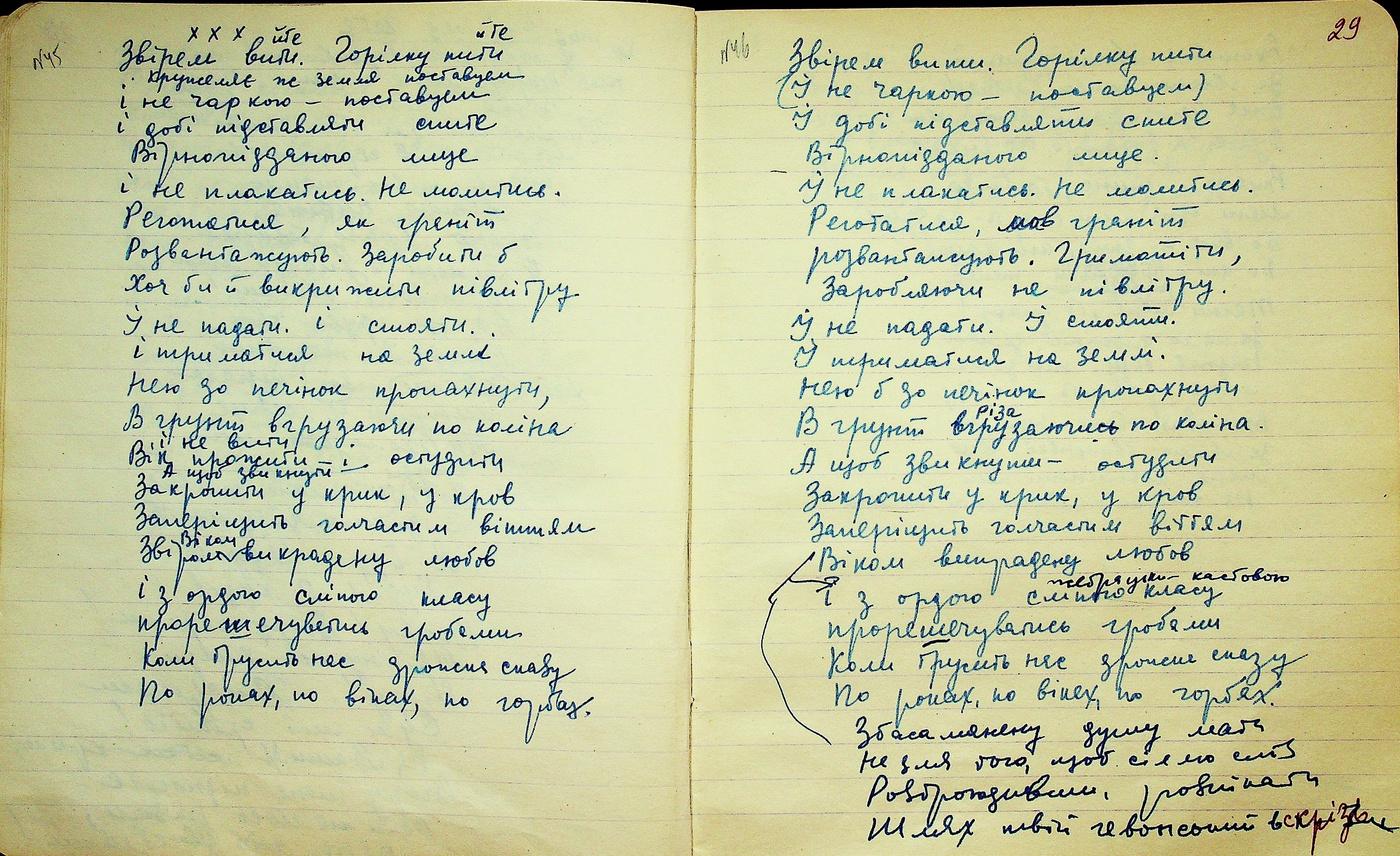 N45
х х х
йте йте
Звірем вити. Горілку пити
Кружеляє ж земля поставцем
і не чаркою – поставцем
і добі підставляти спите
Вірнопідданого лице
і не плакатись. Не молитись.
Реготатися, як граніт
Розвантажують. Заробити б
Хоч би й викрижити півлітру
Й не падати. і стояти.
і триматися на землі
Нею до печінок пропахнути,
В грунт вгрузаючи по коліна
і не вити
Вік прожити – і остудити
А щоб звикнути –
Закропити у крик, у кров
Заперіщить голчастим віттям
Віком
викрадену любов
і з ордого сліпого класу
прорешечуватись гробами
Коли трусить нас дрожна сказу
По роках, по віках, по горбах.
N46
29
Звірем вити. Горілку пити
(Й не чаркою – поставцем)
Й добі підставляти спите
Вірнопідданого лице.
Й не плакатись. Не молитись.
Реготатися, мов граніт
розвантажують. Гриматіти,
Заробляючи не півлітру.
Й не падати. Й стояти.
Й триматися на землі.
Нею б до печінок пропахнути
різа
В грунт вгрузаючись по коліна.
А щоб звикнути – остудити
Закропити у крик, у кров
Заперіщить голчастим віттям
Віком викрадену любов
жебрацько-кастовою
і з ордого сліпого класу
прорешечуватись гробами
Коли трусить нас дрожна сказу
По роках, по віках, по горбах.
Збасаманену душу мать
Не для того, щоб сіллю слів
Роз'ятрюючи, розпікати
Шлях твій вскрізь